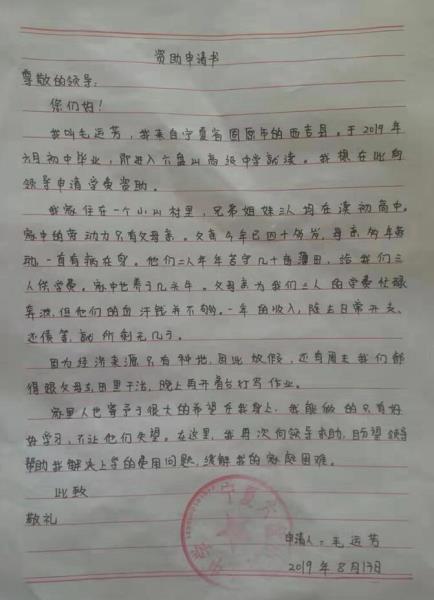 资助申请书
尊敬的领导:
您们好!
我叫毛运芳,我来自宁夏省固原市的西吉县。于2019年
六月初中毕业,即进入六盘山高级中学就读。我想在此向
领导申请学费资助。
我家住在一个小山村里,兄弟姐妹三人均在读初高中。
家中的劳动力只有父母亲。父亲今年已四十多岁,母亲多年
一直有病在身。他们二人年年苦守几十亩薄田,给我们三
人供学费。家中也养了几头牛。父母亲为我们三人的学费忙碌
奔波,但他们的血汗钱并不够。一年的收入,除去日常开支、
还债等,就所剩无几了。
因为经济来源只有种地,因此放假,还有周末我们都
得跟父母去田里干活,晚上再开着台灯写作业。
家里人也寄予了很大的希望在我身上,我能做的只有好
好学习,不让他们失望。在这里,我再次向领导求助,盼望领导
帮助我解决上学的费用问题,缓解我的家庭困难。
此致
敬礼
宁夏六
申请人:毛运芳
2019年8月13日